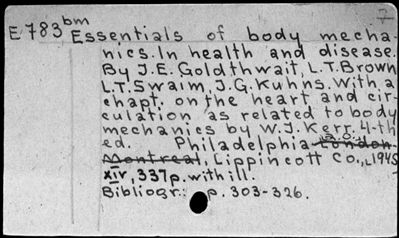 E783 bm
Essentials of body mecha-
nics. In health and disease.
By J.E. Goldthwait, L.T. Brown
L.T. Swaim, J.G. Kuhns. With a
chapt. on the heart and cir-
culation as related to body
mechanics by W.J. Kerr. 4-th
ed. Philadelphia London
Montreal, Lippincott Co., 1945
XIV, 337p. with ill.
Bibliogr.: p. 303-326.